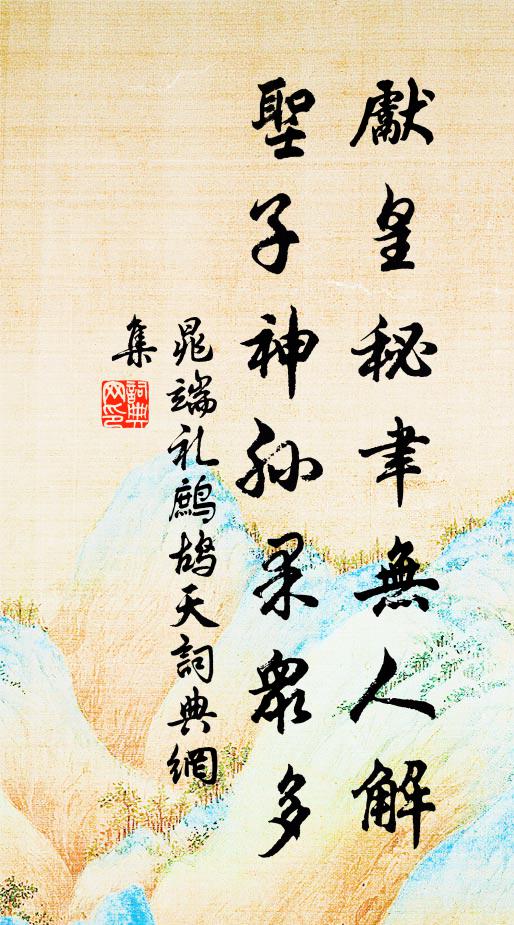 獻皇秘聿無人解
聖子神孫果眾多
晁端礼鷓鴣天詞典網
集
詞典
网印